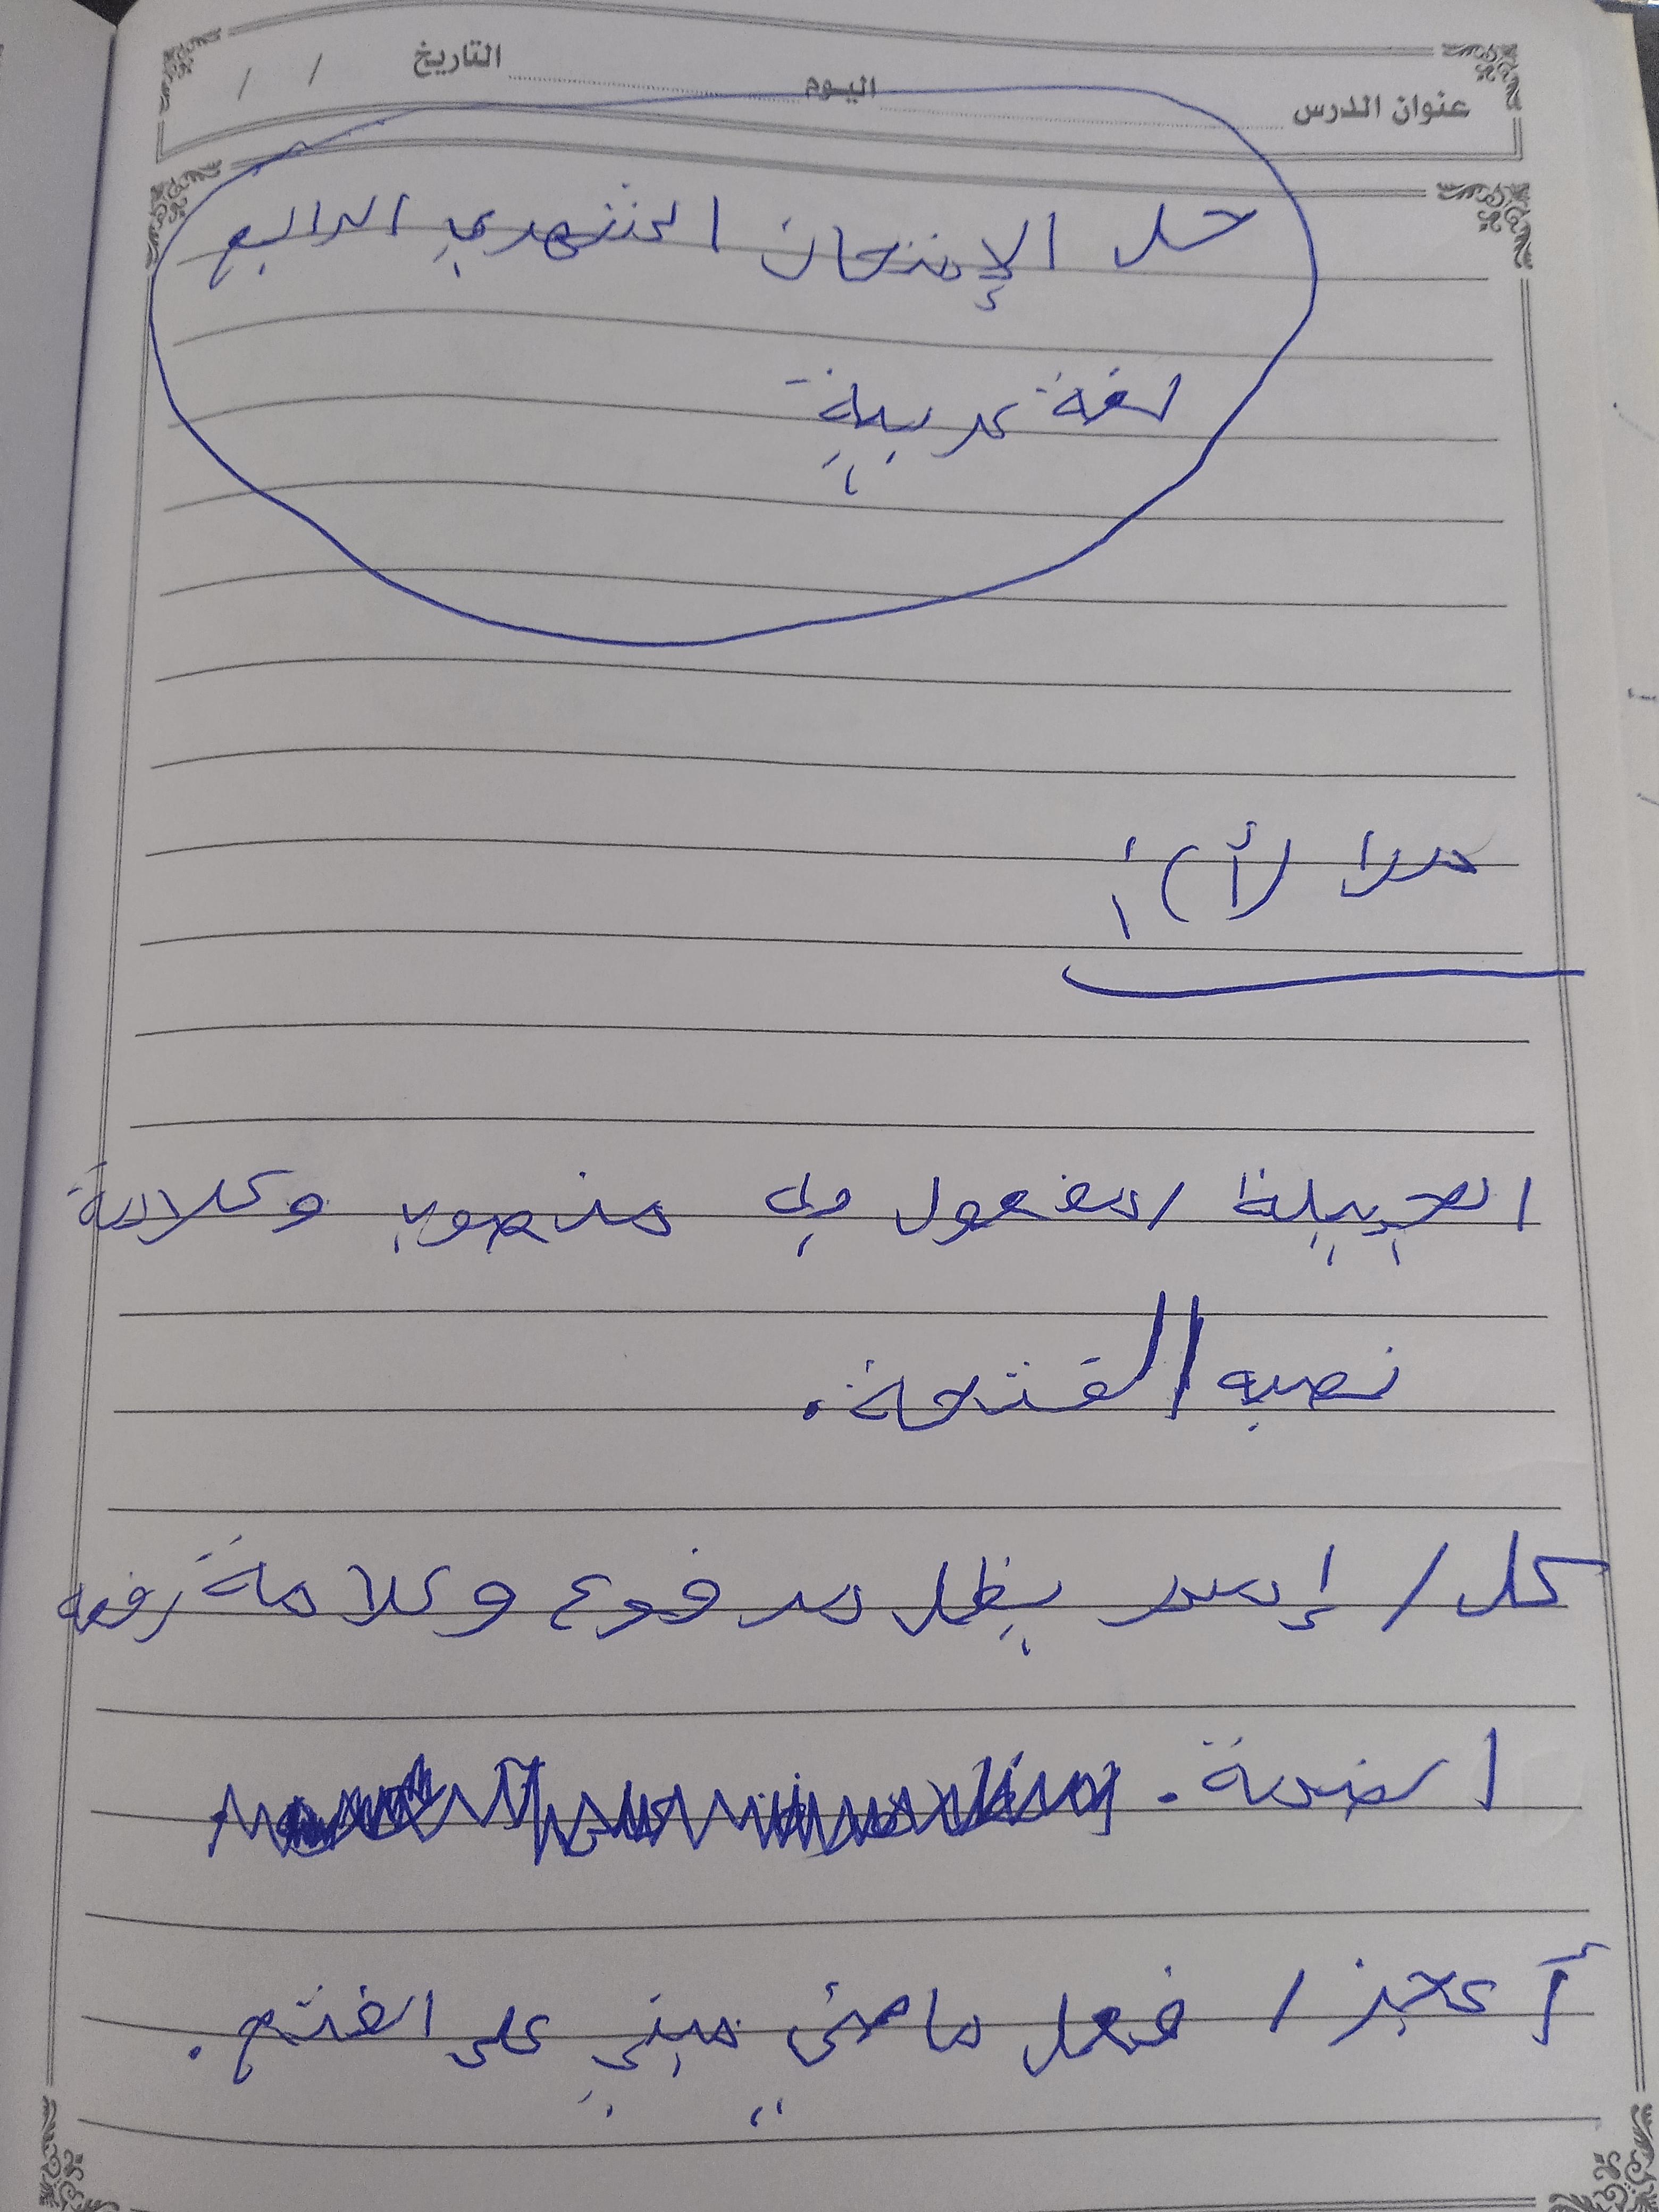 عنوان الدرس اليوم التاريخ / /
حل الإمتحان الشهري الرابع
لغة عربية
(أ)
الجبيلة / مفعول منصوب وعلامة
نصبه الفتحة.
كل / إسم يظل مرفوع وعلامة رفعه
الضمة.
أعجز / فعل ماضي مبني على الفتح.